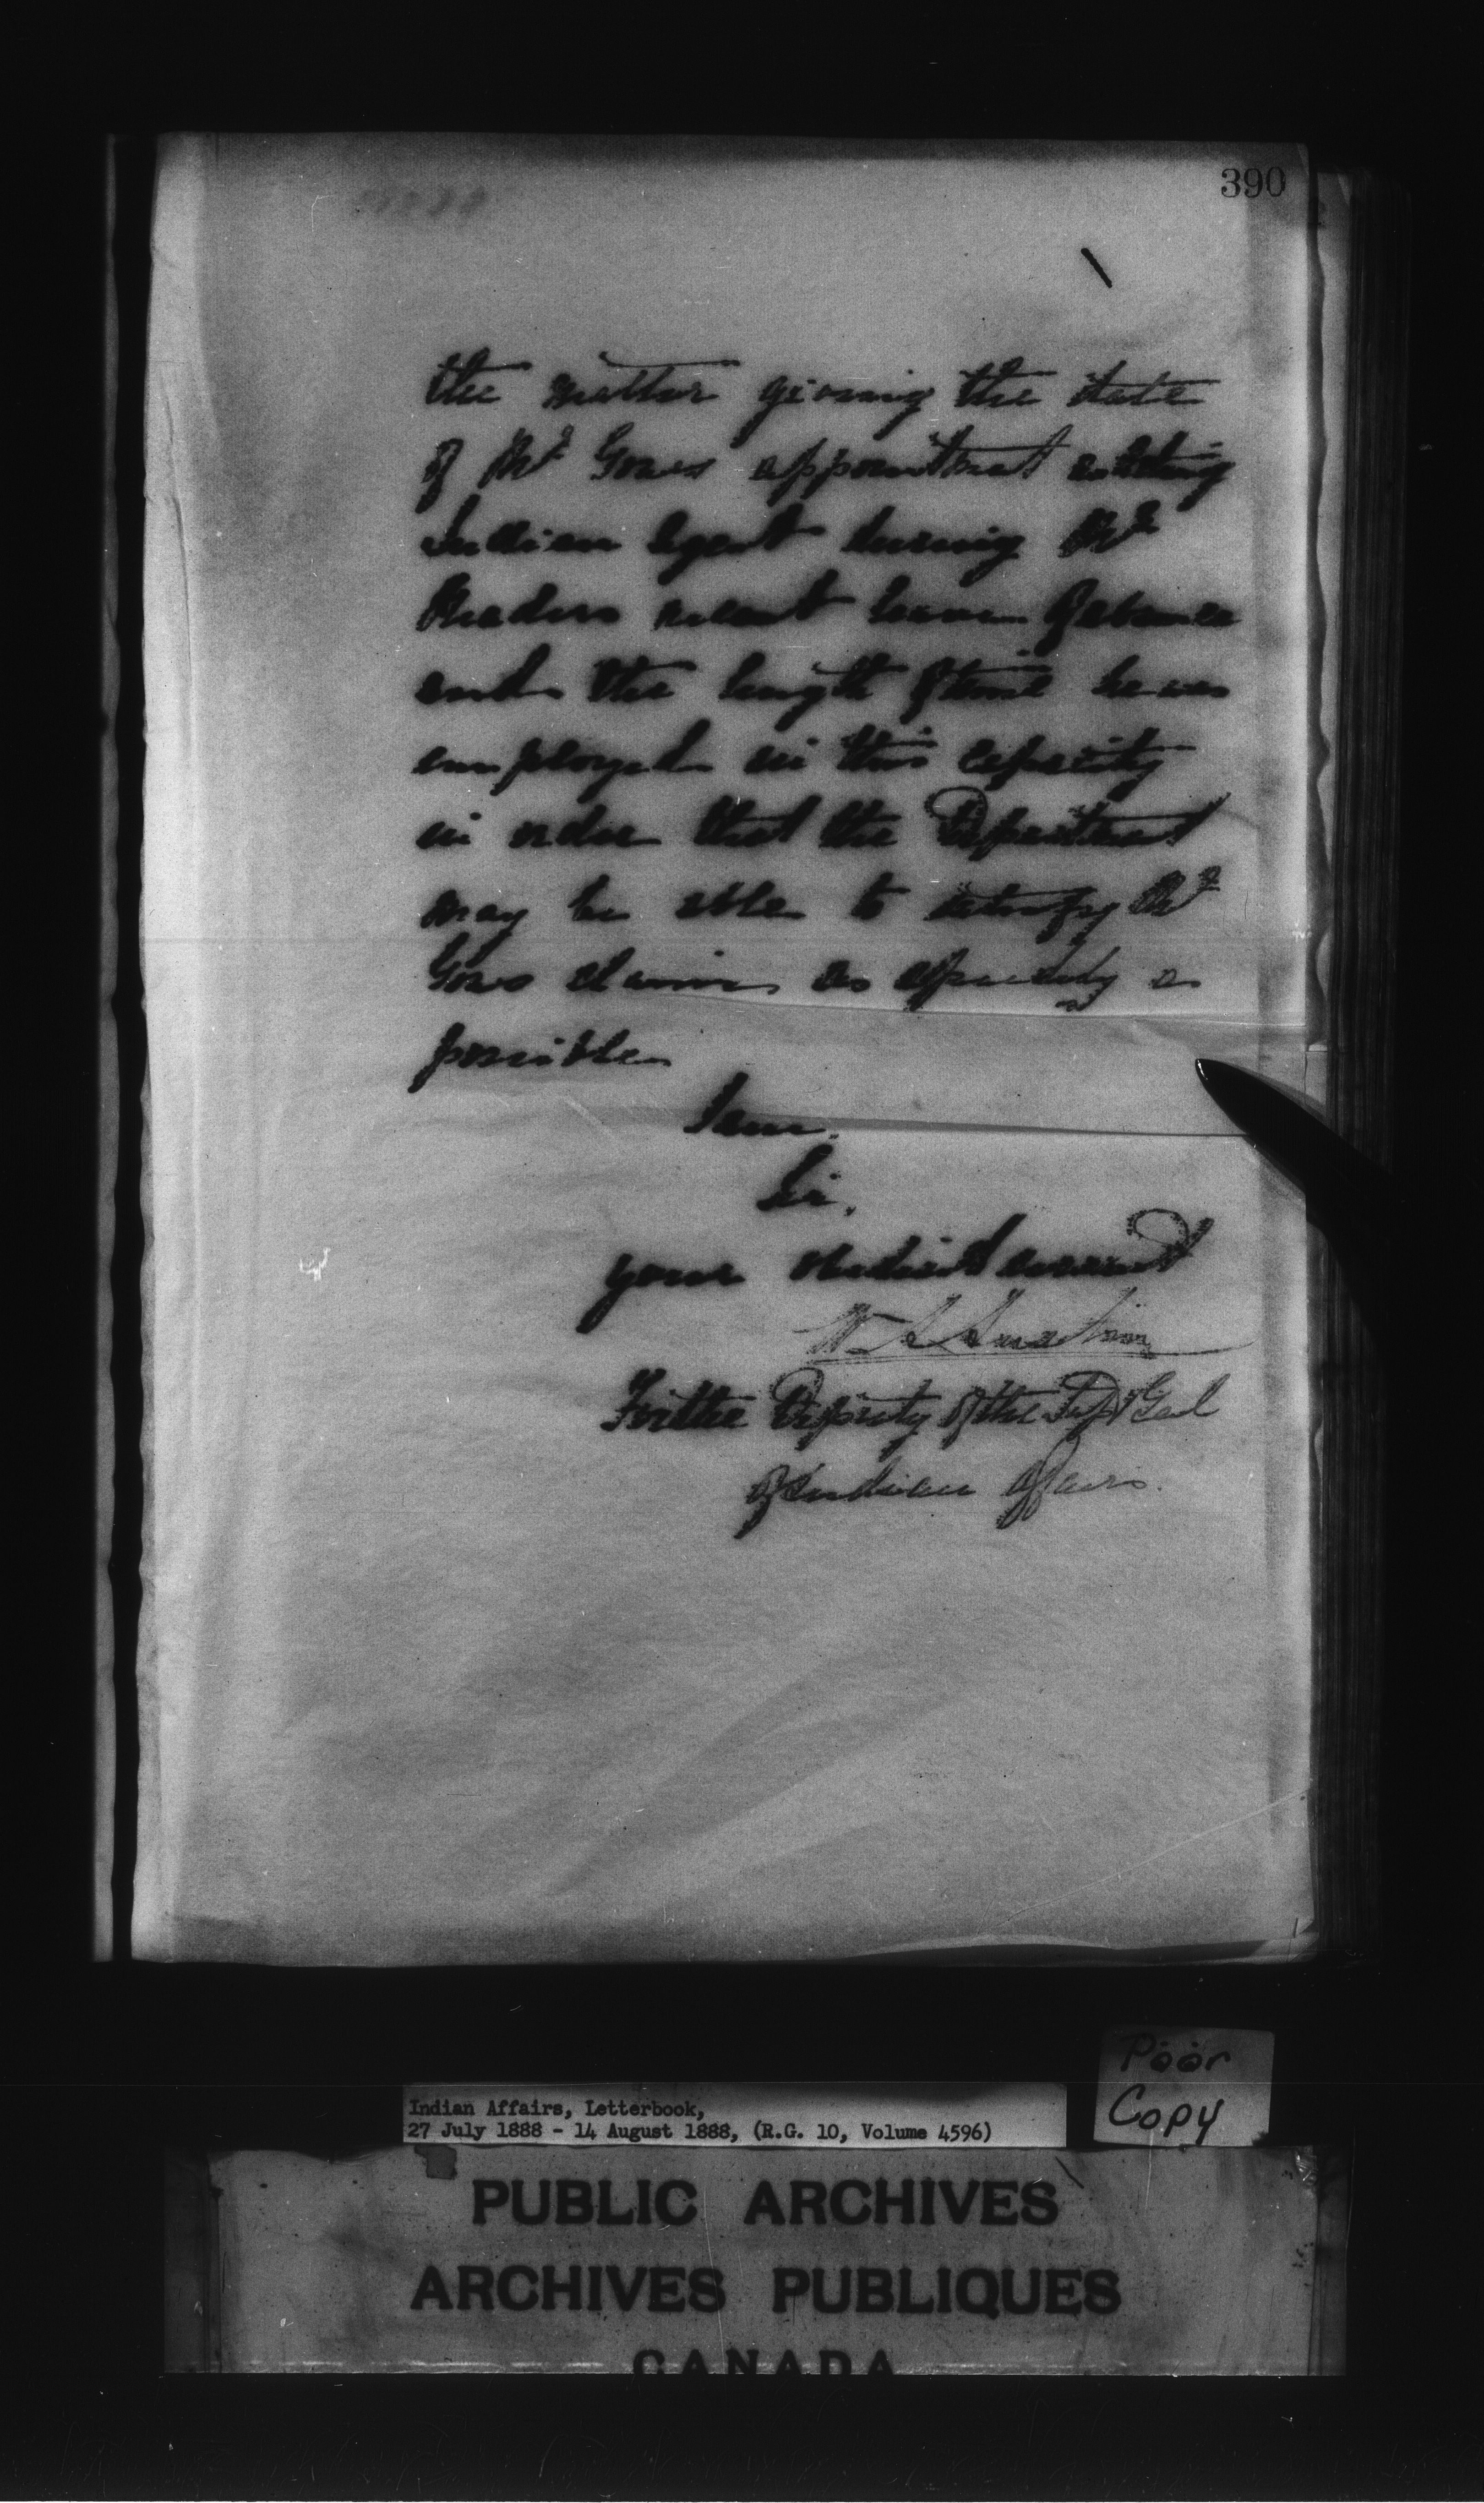 390
the matter giving the date
of Mr Gores appointment as Acting
Indian Agent during Mr
recent leave of absence
and the length of time he was
employed in this capacity
in order that the Department
may be able to satisfy Mr
Gores claim as speedily as
possible
I am,
Sir,
your obedient servant
For the Deputy of the Supt Genl
of Indian Affairs.
Poor
Copy
Indian Affairs, Letterbook,
27 July 1888 - 14 August 1888, (R.G. 10, Volume 4596)
PUBLIC ARCHIVES
ARCHIVES PUBLIQUES
CANADA